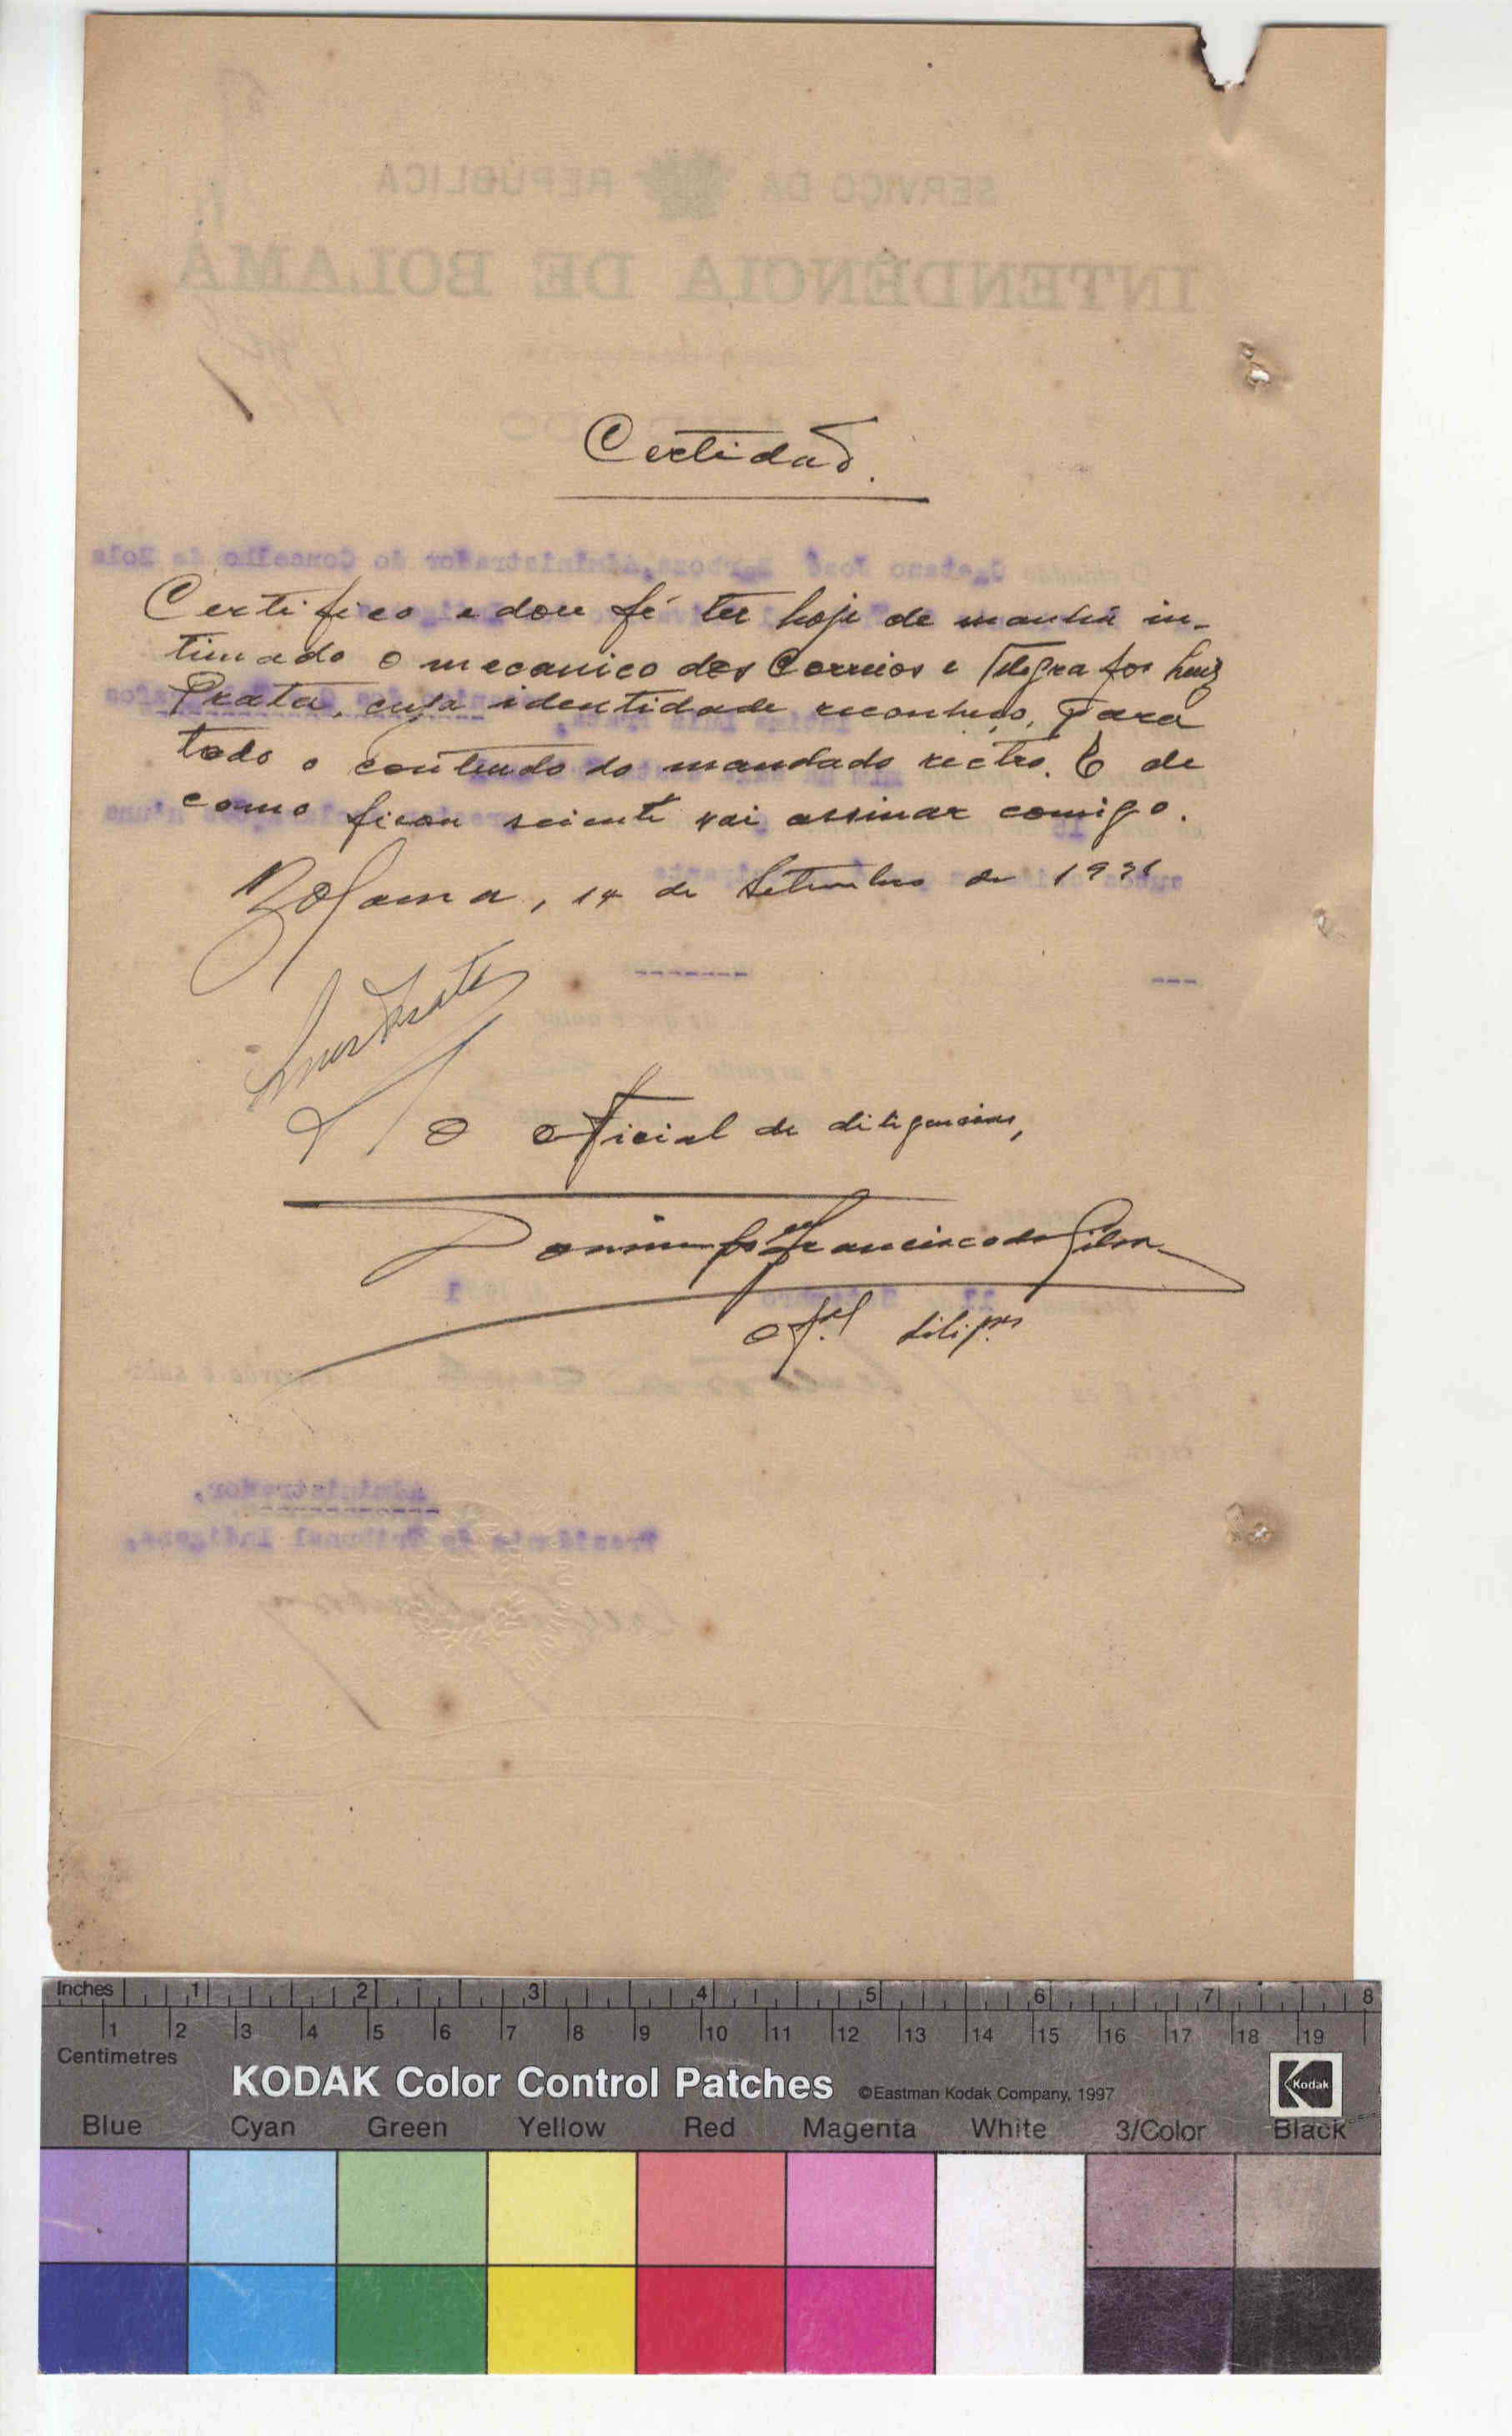 Certidaõ.
Certifico e dou fé ter hoje de manhã in-
timado o mecanico dos Correios e Telegrafos Luiz
Prata, cuja identidade reconheço, para
todo o conteudo do mandado rectro. E de
como ficou sciente vai assinar comigo.
Bolama, 14 de Setembro de 1931
Luis Prata
O Oficial de diligencias,
Domingos Francisco da Silva
Of.el dilig.as
Inches 1 2 3 4 5 6 7 8
1 2 3 4 5 6 7 8 9 10 11 12 13 14 15 16 17 18 19
Centimetres
KODAK Color Control Patches ©Eastman Kodak Company, 1997 Kodak
Blue Cyan Green Yellow Red Magenta White 3/Color Black